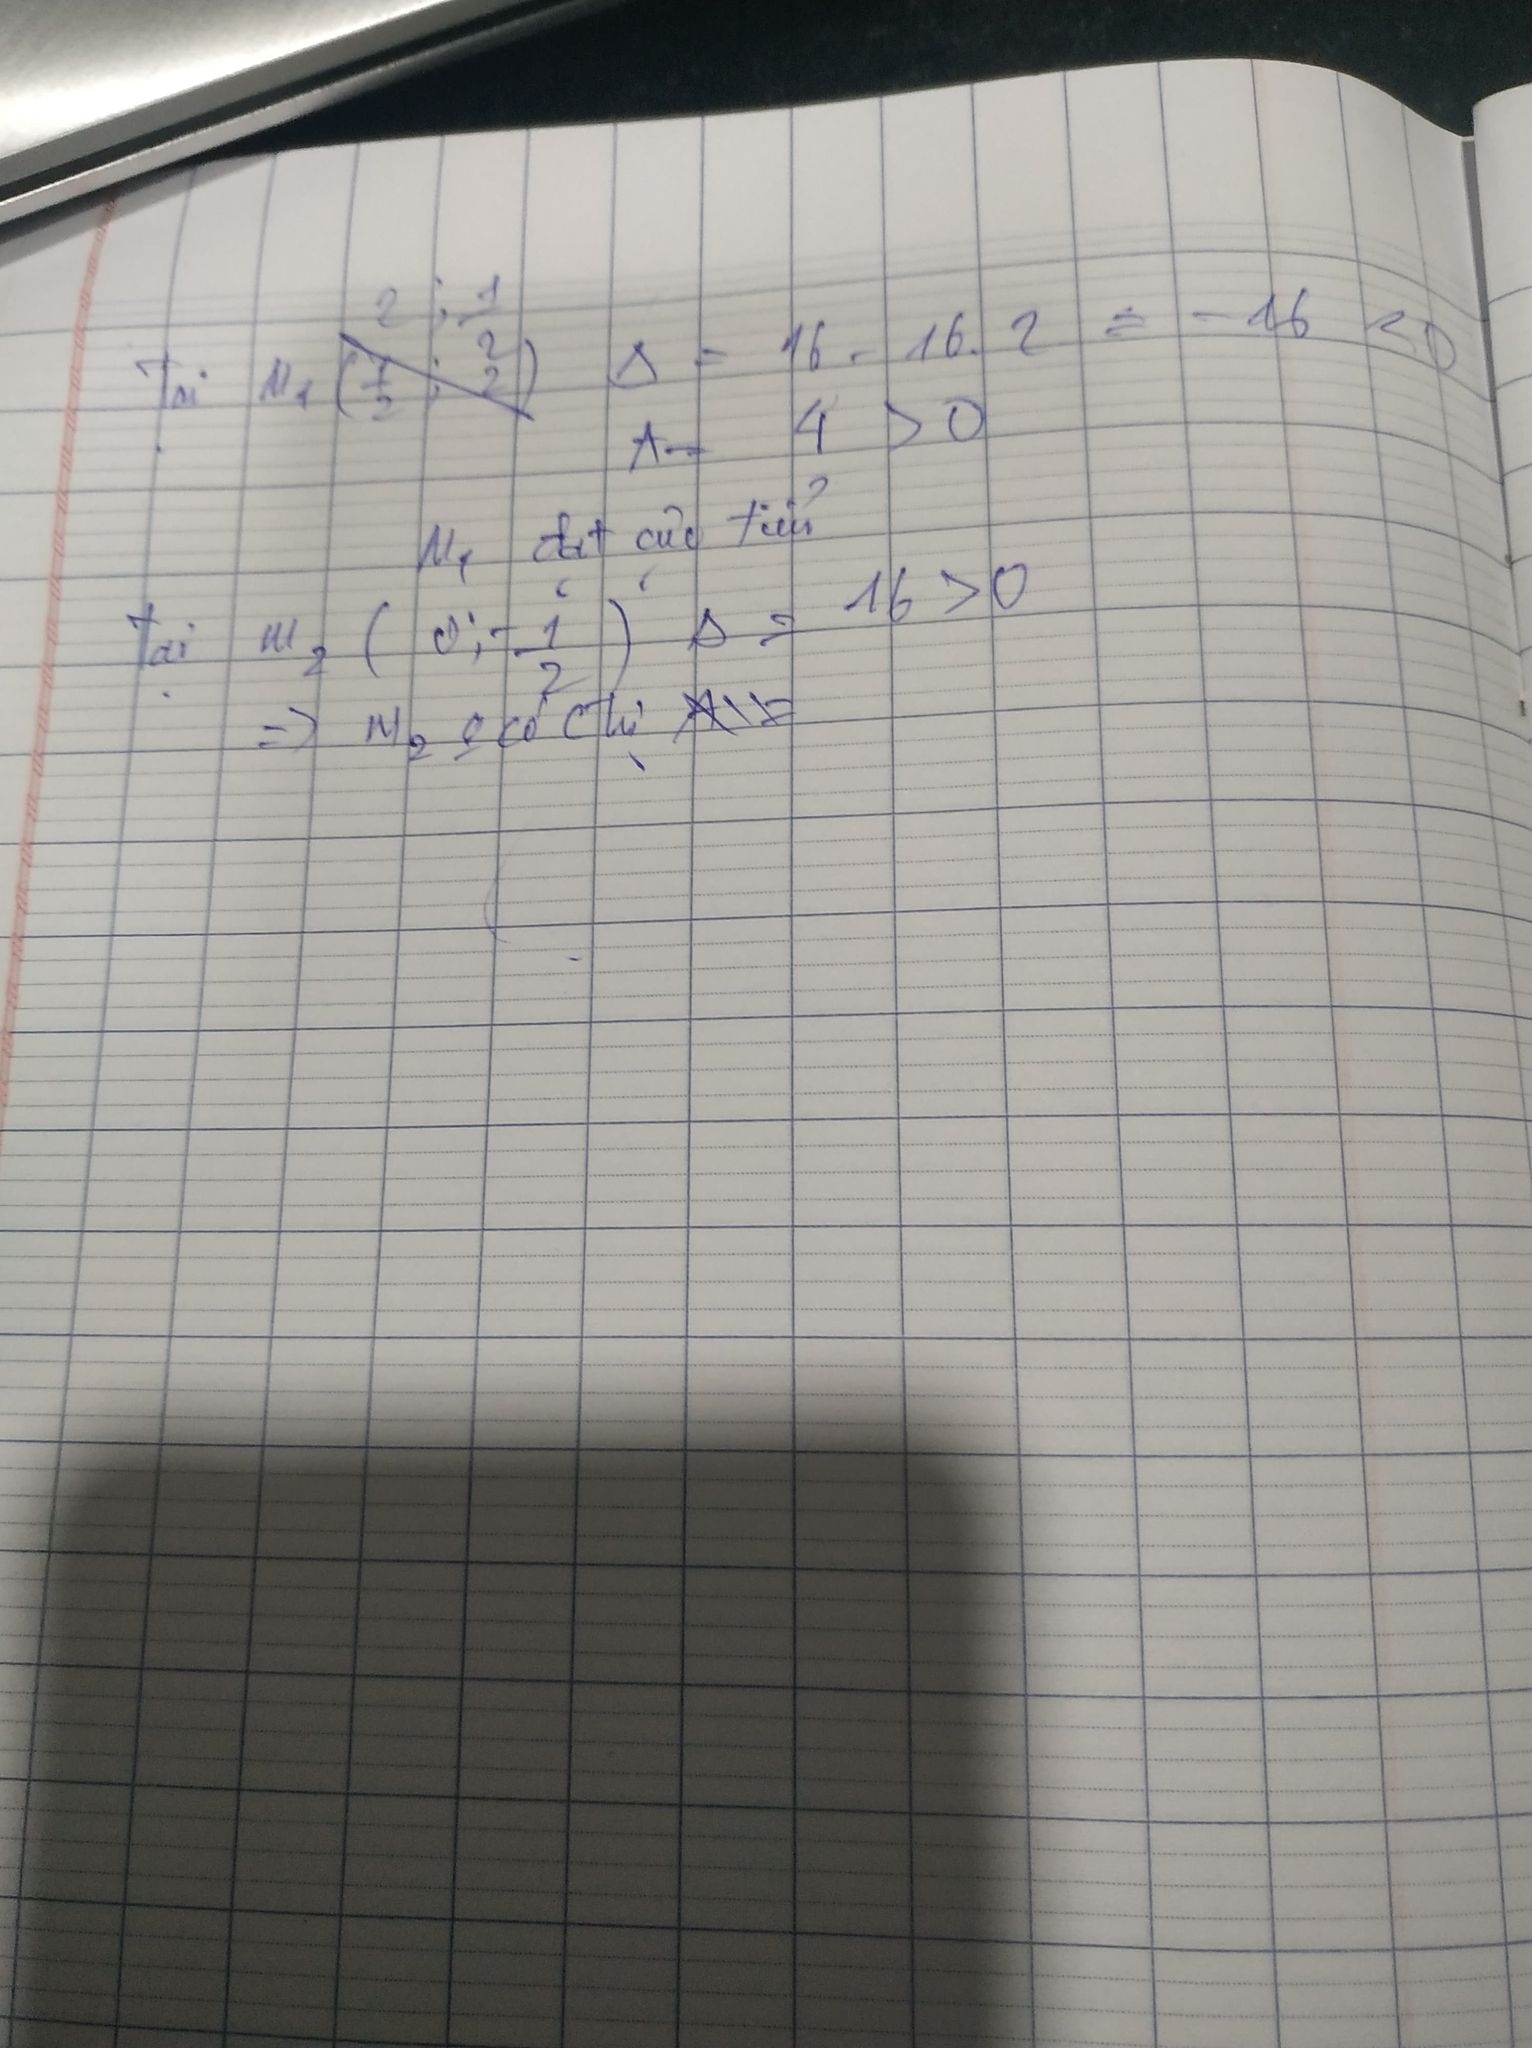 2 ; 1/2
Tại M1 (1/2 ; 2/2) Δ = 16 - 16.2 = -16 < 0
A = 4 > 0
M1 đạt cực tiểu
Tại M2 (0; -1/2) Δ = 16 > 0
=> M2 có cỰ